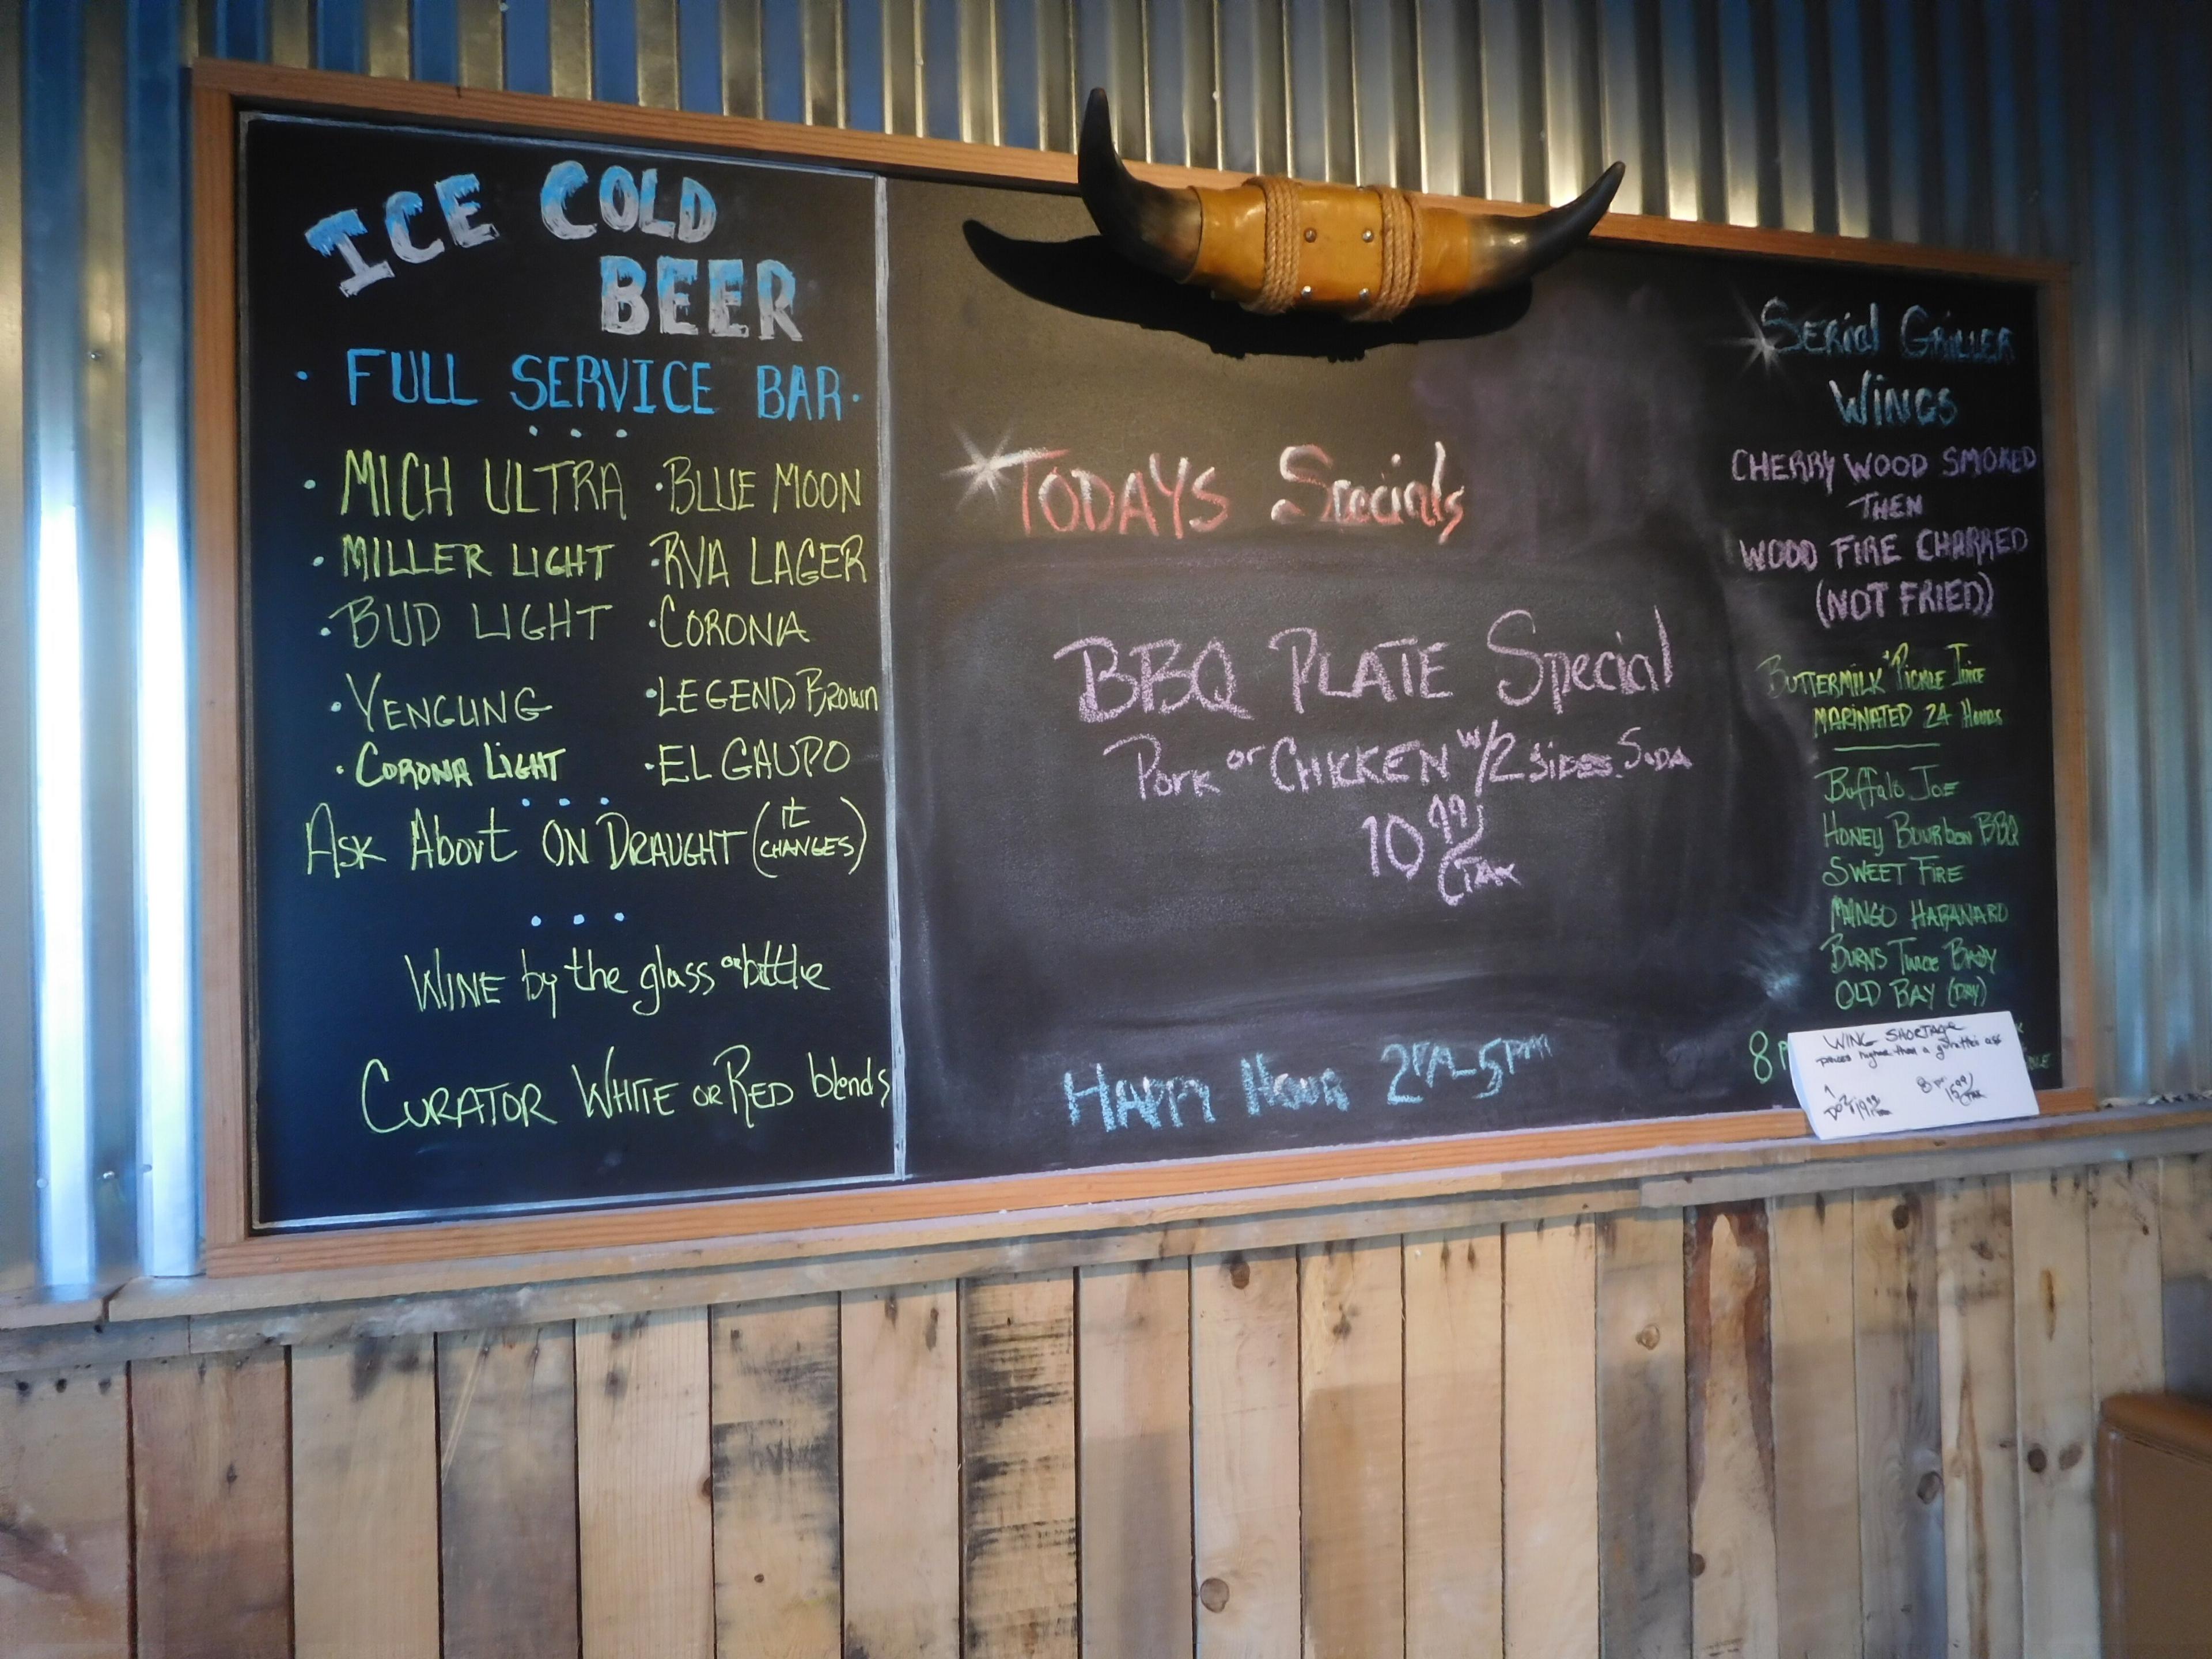 ICE COLD
BEER
• FULL SERVICE BAR •
• • •
• MICH ULTRA • BLUE MOON
• MILLER LIGHT • RVA LAGER
• BUD LIGHT • CORONA
• YENGLING • LEGEND BROWN
• CORONA LIGHT • EL GAUPO
• • •
ASK About ON DRAUGHT (it CHANGES)
• • •
WINE by the glass or bottle
CURATOR WHITE OR RED blends
TODAYS Specials
BBQ PLATE Special
PORK or CHICKEN W/2 SIDES. SODA
10.99/TAX
HAPPY HOUR 2PM-5PM
SERIAL GRILLER
WINGS
CHERRY WOOD SMOKED
THEN
WOOD FIRE CHARRED
(NOT FRIED)
BUTTERMILK + PICKLE JUICE
MARINATED 24 HOURS
Buffalo JOE
HONEY BOURBON BBQ
SWEET FIRE
MANGO HABANARO
BURNS TWICE BABY
OLD BAY (DRY)
8 P
WING SHORTAGE
prices higher than a giraffes ass
1 DOZ 19.99/TAX 8 PC 15.99/TAX